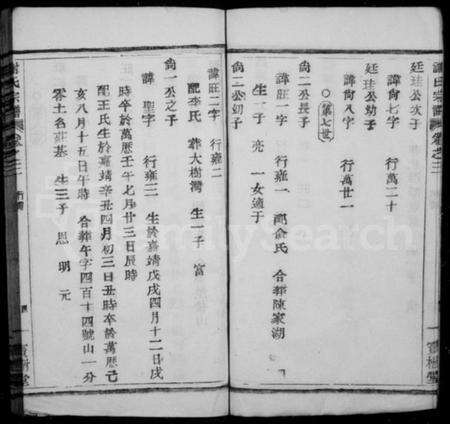 謝氏宗譜 卷之三
廷珪公次子
諱尚七字 行萬二十
廷珪公幼子
諱尚八字 行萬廿一
○第七世
尚二公長子
諱旺一字 行雍一 配俞氏 合葬陳家湖
生一子 亮 一女適于
尚二公幼子
諱旺二字 行雍二
配李氏 葬大樹灣 生一子 富
尚一公之子
諱聖字 行雍三 生於嘉靖戊戌四月十二日戌
時卒於萬曆壬午七月廿三日辰時
配王氏生於嘉靖辛丑四月初三日丑時卒於萬曆己
亥八月十五日午時 合葬午字四百十四號山一分
零土名莊基 生三子 恩 明 元
寶樹堂
FamilySearch